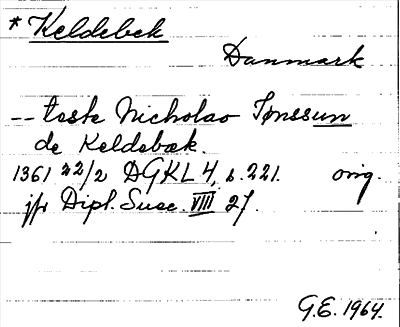 * Keldebek
Danmark
-- teste Nicholao Tønssun
de Keldebæk.
1361 22/2 DGKL 4, s. 221. orig.
jfr Dipl. Suec. VIII 27.
G.E. 1964.